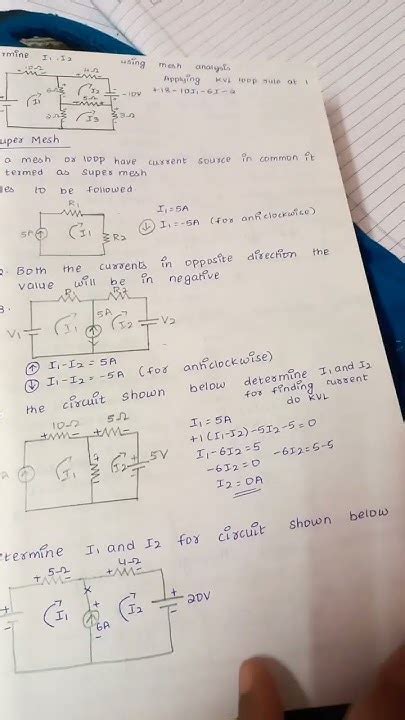 ermine I1, I2 using mesh analysis
10Ω 4Ω Applying KVL loop rule at 1
I1 6Ω I2 -10V +18-10I1-6I-2
5Ω
2Ω I3 3Ω
uper Mesh
a mesh or loop have current source in common it
termed as super mesh
les to be followed
R1 I1=5A
5A I1 R2 ↓ I1=-5A (for anticlockwise)
2. Both the currents in opposite direction the
value will be in negative
3. R1 R2
V1 I1 5A I2 V2
↑ I1-I2=5A
↓ I1-I2=-5A (for anticlockwise)
the circuit shown below determine I1 and I2
for finding current
do KVL
10Ω 5Ω I1=5A
+ - + - +1(I1-I2)-5I2-5=0
I1 I2 + - 5V I1-6I2=5
-6I2=0 -6I2=5-5
I2=0A
etermine I1 and I2 for circuit shown below
+ 5Ω - + 4Ω -
x
+ - I1 + 6A - I2 + - 20V